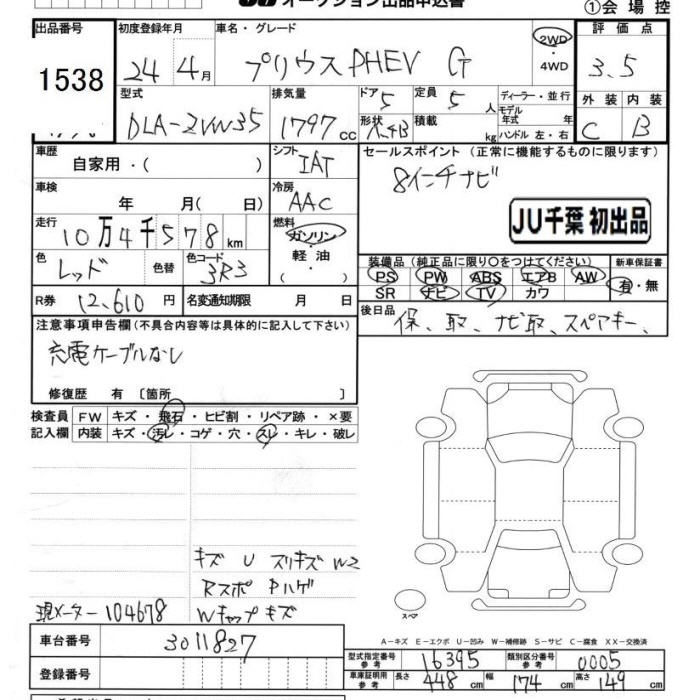 オークション出品申込書
①会場控
出品番号 初度登録年月 車名・グレード 2WD・4WD 評価点
1538 24年4月 プリウスPHEV G 3.5
型式 排気量 ドア 定員 ディーラー・並行 外装 内装
DLA-ZVW35 1797cc 5 5人 モデル年式 C B
形状 積載 kg ハンドル 左・右
車歴 シフト セールスポイント (正常に機能するものに限ります)
自家用・( ) IAT 8インチナビ
車検 冷房
年 月( 日) AAC JU千葉 初出品
走行 燃料
10万4千578km ガソリン・軽油(・)
色 色替 色コード 装備品(純正品に限り○をつけてください) 新車保証書
レッド 3R3 PS PW ABS エアB AW 有・無
SR ナビ TV カワ
R券 12,610円 名変通知期限 月 日 後日品
保、取、ナビ取、スペアキー、
注意事項申告欄(不具合内容等は具体的に記入して下さい)
充電ケーブルなし
修復歴 有 〔箇所 〕
検査員 FW キズ・飛石・ヒビ割・リペア跡・×要
記入欄 内装 キズ・汚レ・コゲ・穴・スレ・キレ・破レ
キズ U スリキズ W2
Rスポ Pハゲ
現メーター 104678 Wキャップキズ
スペア
A－キズ E－エクボ U－凹み W－補修跡 S－サビ C－腐食 XX－交換済
車台番号 3011827
型式指定番号 参考 16395 類別区分番号 参考 0005
登録番号
車庫証明用 参考 長さ 448cm 幅 174cm 高さ 149cm